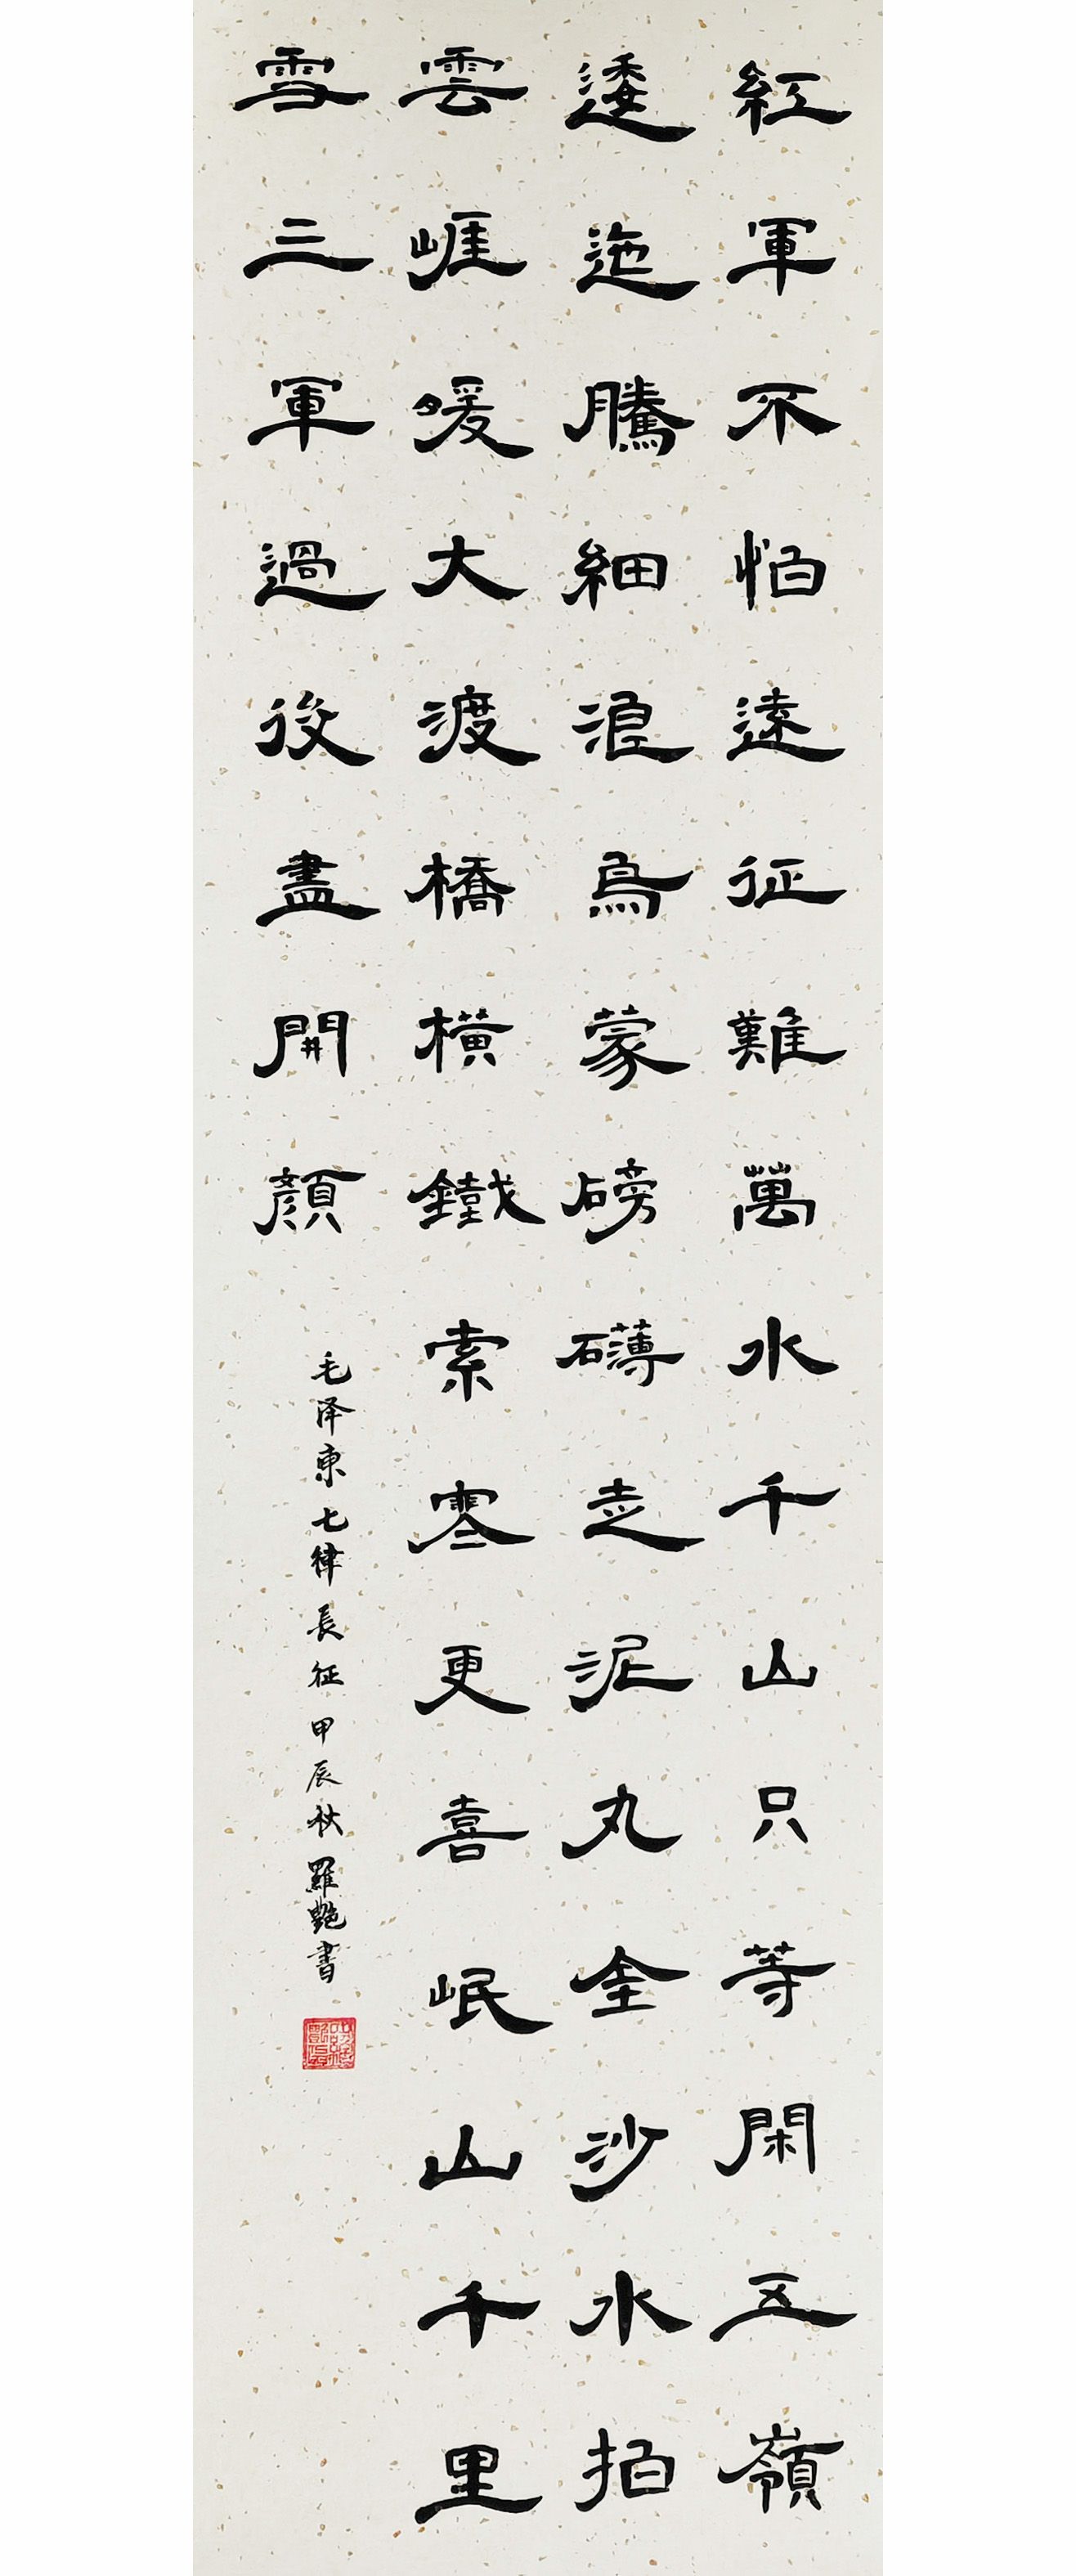 紅軍不怕遠征難萬水千山只等閑五嶺
逶迤騰細浪烏蒙磅礴走泥丸金沙水拍
雲崕暖大渡橋橫鐵索寒更喜岷山千里
雪三軍過後盡開顏
毛泽東七律長征甲辰秋羅艷書